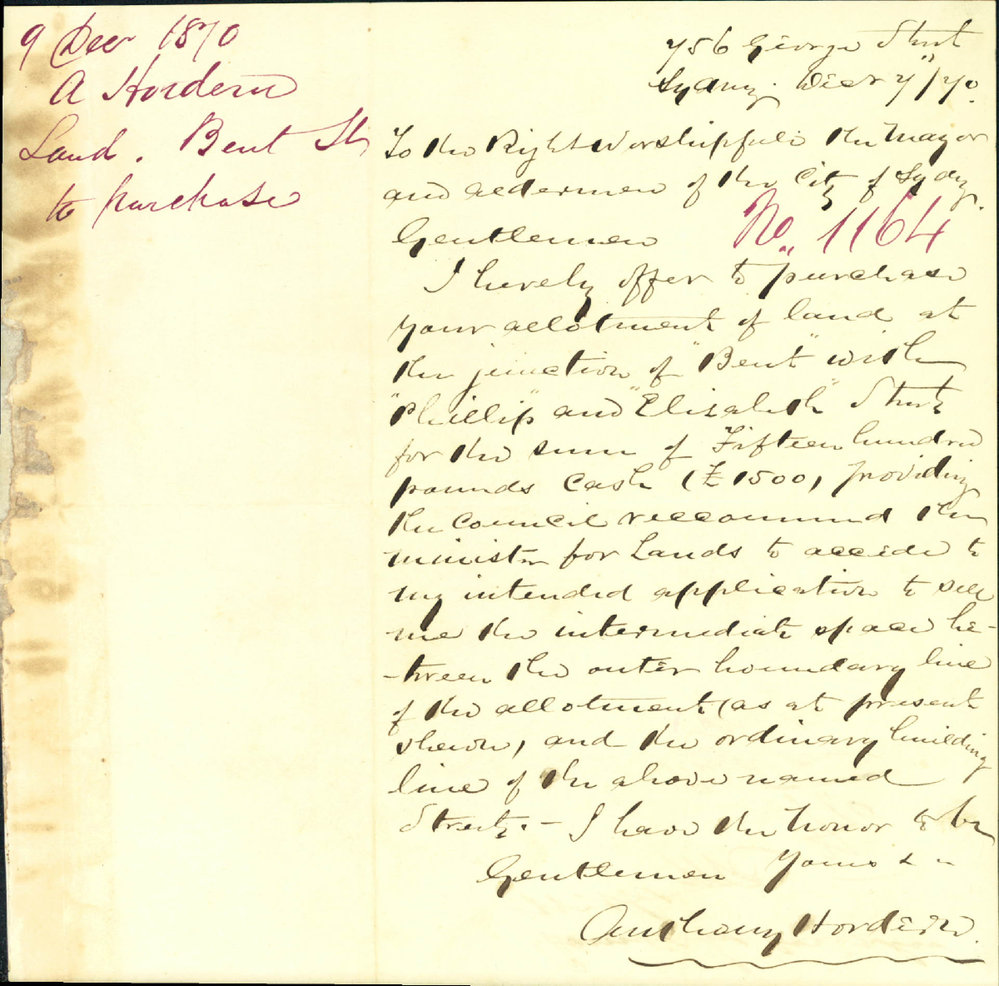 9 Decr 1870
A Hordern
Land. Bent St
to purchase
756 George Street
Sydney. Decr 7th/70.
To the Right Worshipfull the Mayor
and aldermen of the City of Sydney.
Gentlemen
No. 1164
I hereby offer to purchase
your allotment of land at
the junction of "Bent" with
"Phillip" and "Elizabeth" Streets
for the sum of Fifteen hundred
pounds Cash (£1500) providing
the Council reccommend the
minister for Lands to accede to
my intended application to sell
me the intermediate space be-
-tween the outer boundary line
of the allotment (as at present
shewn) and the ordinary building
line of the above named
Streets. - I have the honor to be
Gentlemen Yours &c
Anthony Hordern.